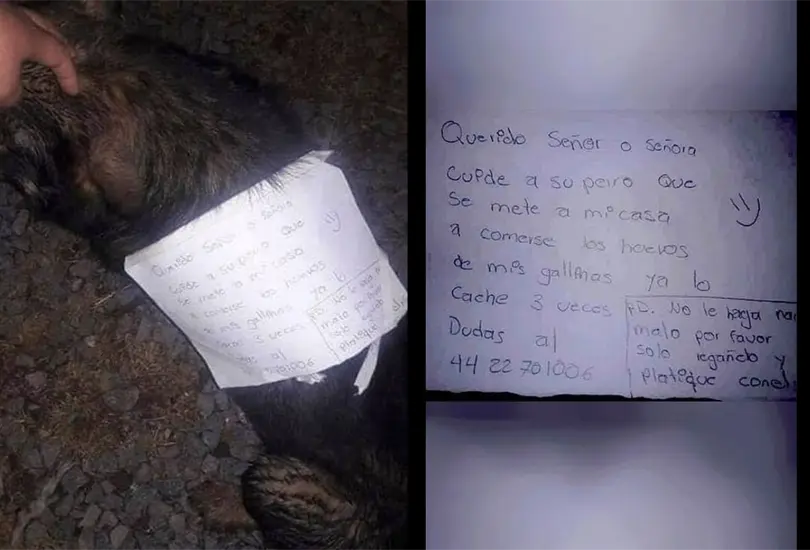 Querido Señor o Señora
Cuide a su perro Que
Se mete a mi casa
a comerse los hoevos
de mis gallinas ya lo
Cache 3 veces
Dudas al
44 22 701006
PD. No le haga na
malo por favor
solo regañelo y
Platique con el
Querido Señor o Señora
Cuide a su perro Que
Se mete a mi casa
a comerse los hoevos
de mis gallinas ya lo
Cache 3 veces
Dudas al
44 22 701006
PD. No le haga na
malo por favor
solo regañelo y
Platique conel